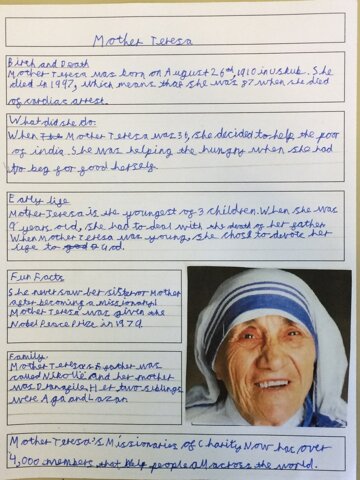 Mother Teresa
Birth and Death
Mother Teresa was born on August 26nd, 1910 in uskub. She
died in 1997, which means that she was 87 when she died
of cardiac arrest.
What did she do:
When The Mother Teresa was 38, she decided to help the poor
of india. She was helping the hungry when she had
to beg for good herself.
Early life
Mother Teresa is the youngest of 3 children. When she was
9 years old, she had to deal with the death of her father
When Mother Teresa was young, she chose to devote her
life to god God.
Fun Facts
She never saw her sister or mother
after becoming a missionary!
Mother Teresa was given the
Nobel Peace Prize in 1979
Family.
Mother Teresa's father was
called Nikollë and her mother
was Dranafile. Her two siblings
were Aga and Lazar
Mother Teresa's Missionaries of Charity Now has over
4,000 members that help people all across the world.